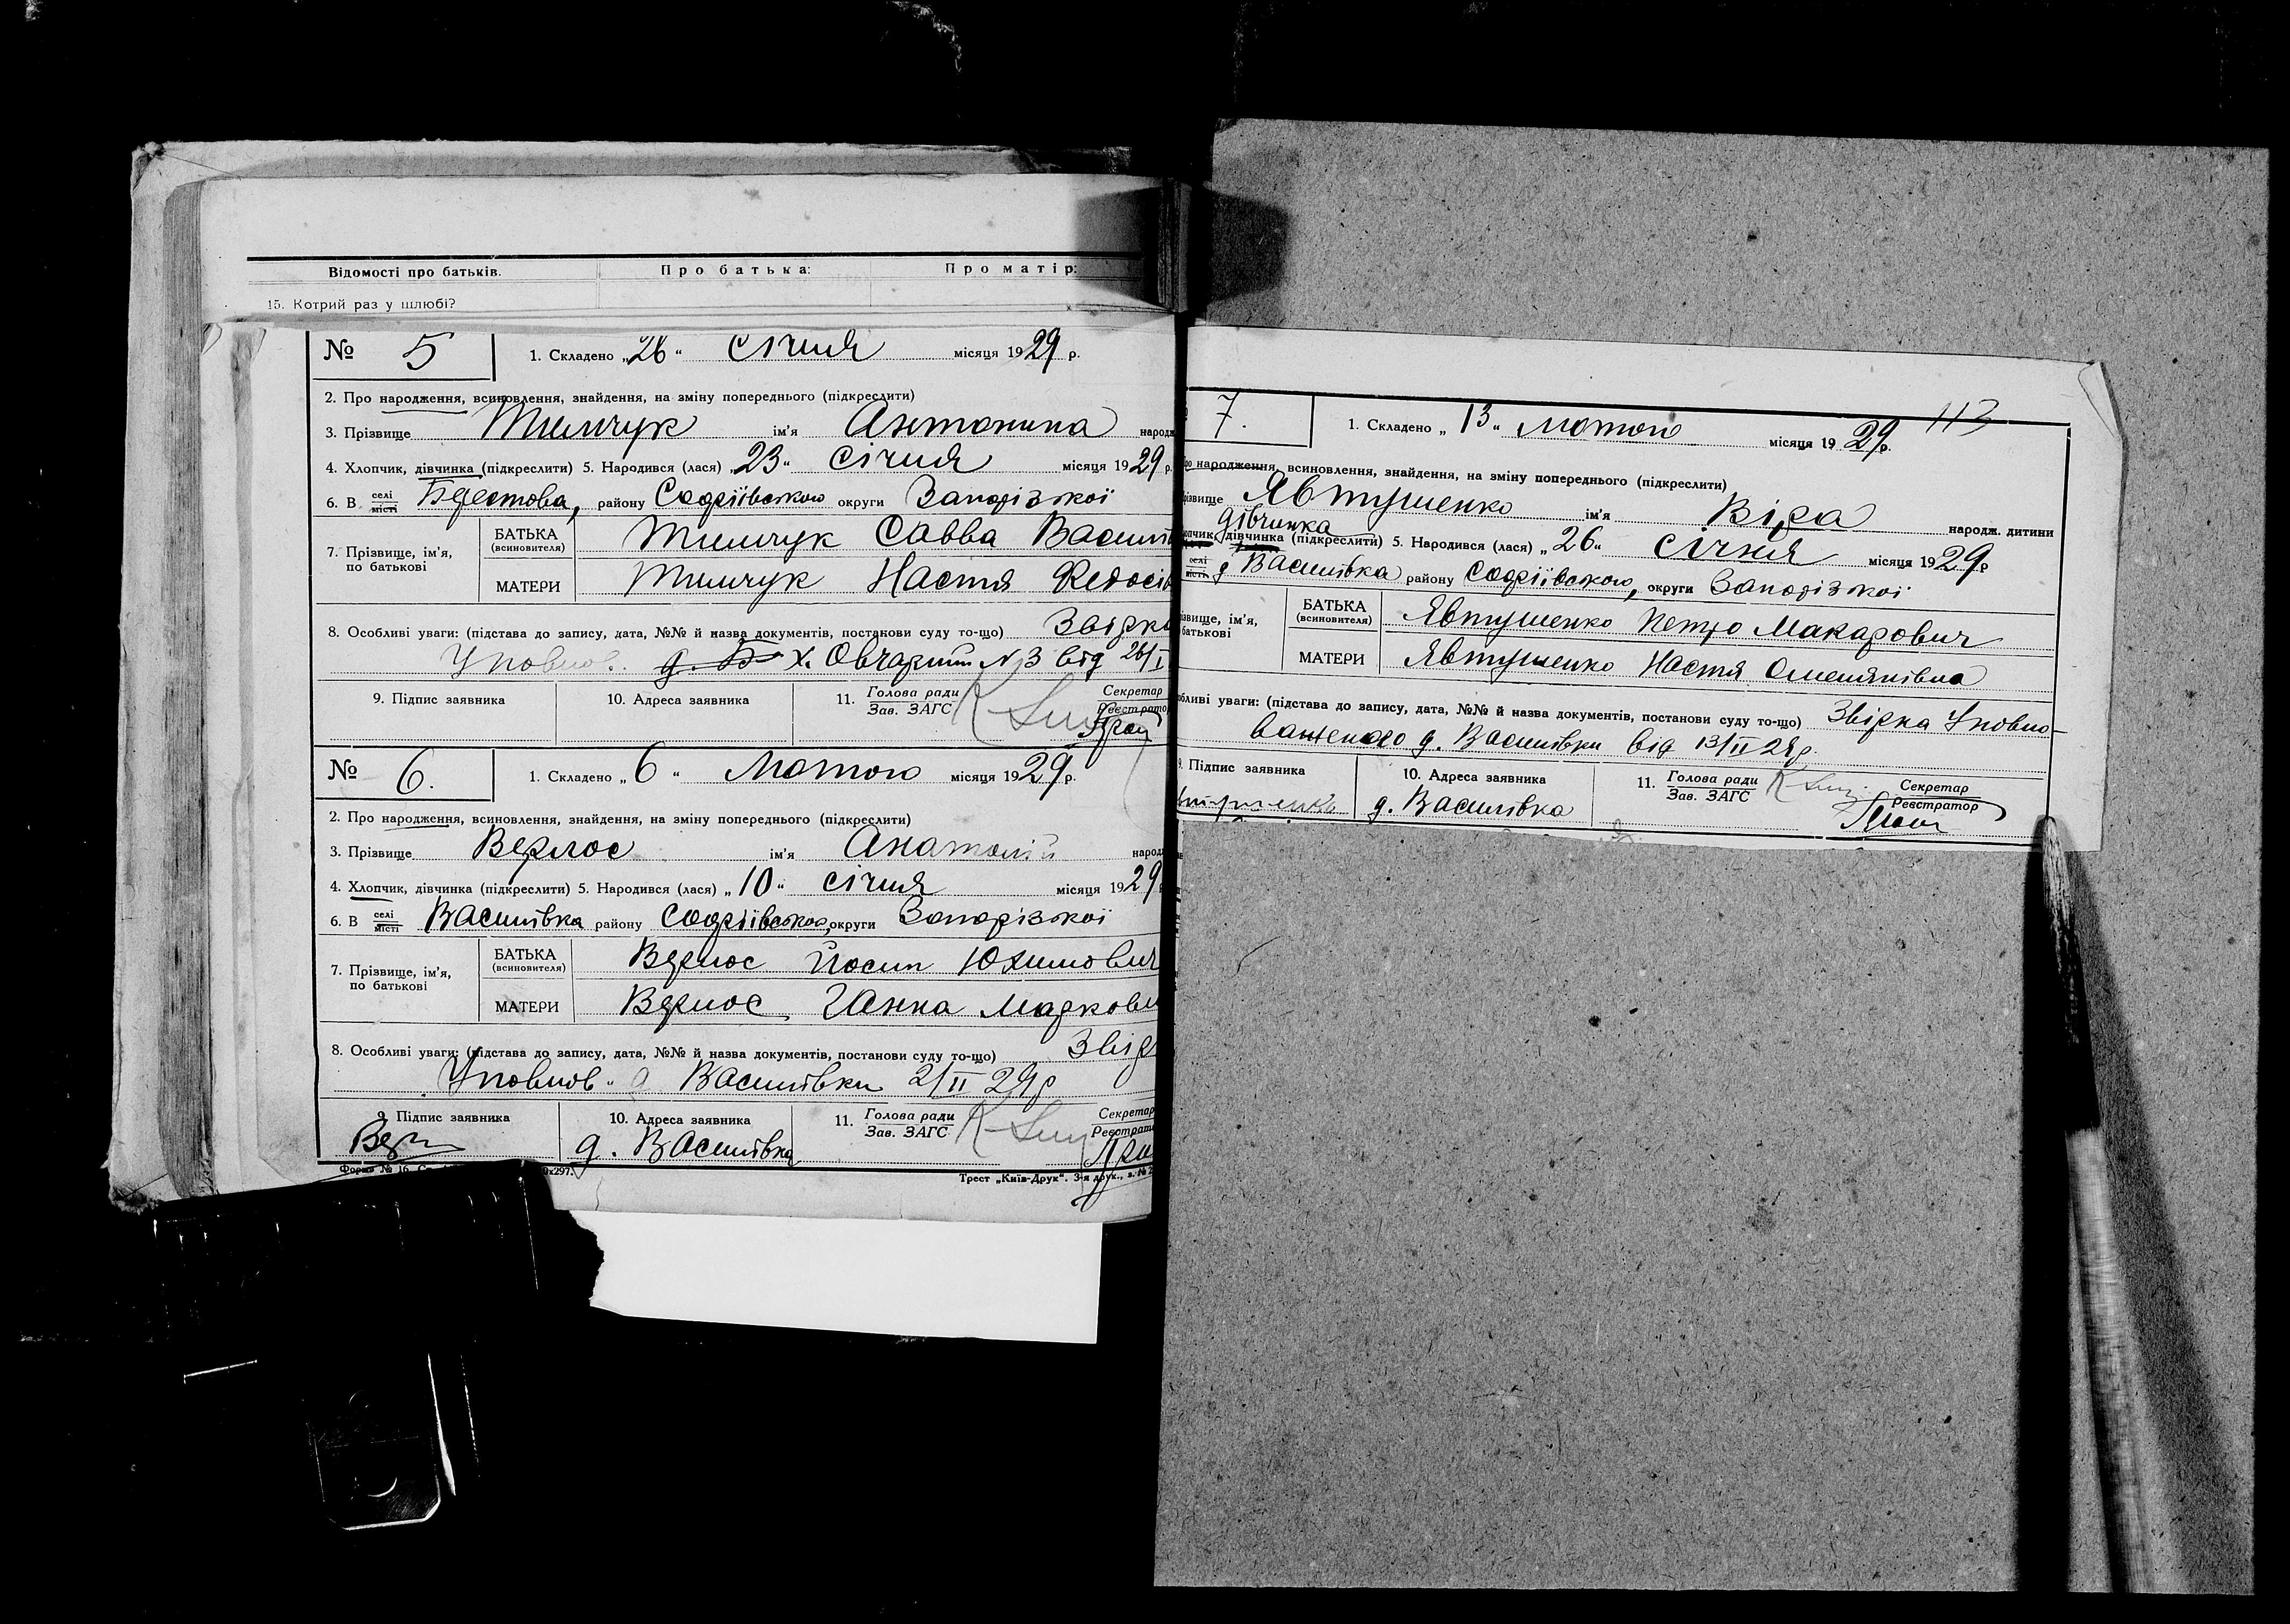 Відомості про батьків. Про батька: Про матір:
15. Котрий раз у шлюбі?
№ 5 1. Складено „26" січня місяця 1929 р.
2. Про народження, всиновлення, знайдення, на зміну попереднього (підкреслити)
3. Прізвище Тимчук ім'я Антонина народ
4. Хлопчик, дівчинка (підкреслити) 5. Народився (лася) „23" січня місяця 1929 р.
6. В селі місті Берестова, району Софіївського округи Запорізької
7. Прізвище, ім'я, по батькові
БАТЬКА (всиновителя) Тимчук Савва Васил
МАТЕРИ Тимчук Настя Федосів
8. Особливі уваги: (підстава до запису, дата, №№ й назва документів, постанови суду то-що) Звірка
Уповнов. х. Овчарний № 3 від 26/I
9. Підпис заявника 10. Адреса заявника 11. Голова ради Зав. ЗАГС Секретар Реєстратор
№ 6. 1. Складено „6" Лютого місяця 1929 р.
2. Про народження, всиновлення, знайдення, на зміну попереднього (підкреслити)
3. Прізвище Верлос ім'я Анатолій народ
4. Хлопчик, дівчинка (підкреслити) 5. Народився (лася) „10" січня місяця 1929
6. В селі місті Василівка району Софіївського, округи Запорізької
7. Прізвище, ім'я, по батькові
БАТЬКА (всиновителя) Верлос Йосип Юхимович
МАТЕРИ Верлос Ганна Маркови
8. Особливі уваги: (підстава до запису, дата, №№ й назва документів, постанови суду то-що) Звір
Уповнов. д Василівки 2/II 29 р
9. Підпис заявника 10. Адреса заявника 11. Голова ради Зав. ЗАГС Секретар Реєстрат
д. Василівка
Форма № 16. х297. Трест „Київ-Друк". 3-я друк., з. №
113
7. 1. Складено „13" Лютого місяця 1929 р.
ро народження, всиновлення, знайдення, на зміну попереднього (підкреслити)
різвище Явтушенко ім'я Віра народж. дитини
дівчинка
опчик, дівчинка (підкреслити) 5. Народився (лася) „26" січня місяця 1929 р
селі місті д Василівка району Софіївського, округи Запорізької
ізвище, ім'я, батькові
БАТЬКА (всиновителя) Явтушенко Петро Макарович
МАТЕРИ Явтушенко Настя Омелянівна
обливі уваги: (підстава до запису, дата, №№ й назва документів, постанови суду то-що) Звірка Уповно-
важеного д. Василівки від 13/II 29 р.
9. Підпис заявника 10. Адреса заявника 11. Голова ради Зав. ЗАГС Секретар Реєстратор
д. Василівка